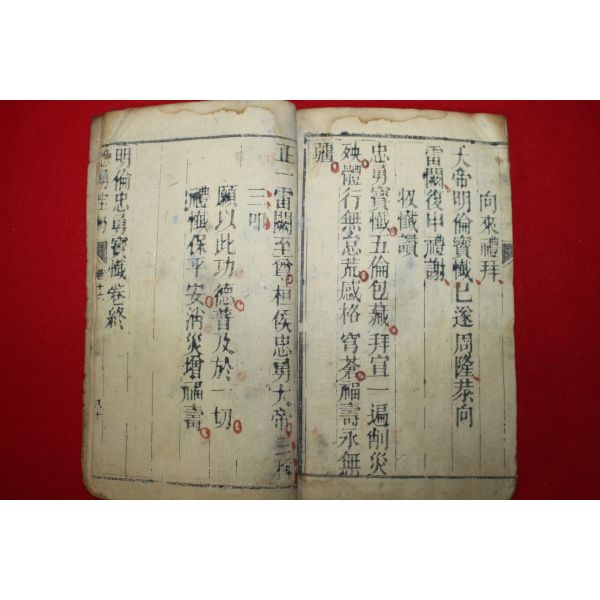 向來禮拜
大帝明倫寶懺已遂周隆恭向
雷闕復申禮謝
收懺讚
忠勇寶懺五倫包藏拜宣一遍削災
殃體行無怠荒感格穹蒼福壽永無
疆
正一雷闕至尊桓侯忠勇大帝
三叩
願以此功德普及於一切
禮懺保平安消災增福壽
明倫忠勇寶懺卷終
卷十六
九十